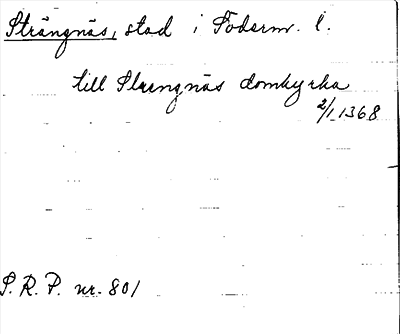 Strängnäs, stad i Söderm. l.
till Strengnäs domkyrka
2/1 1368
S. R. P. nr. 801